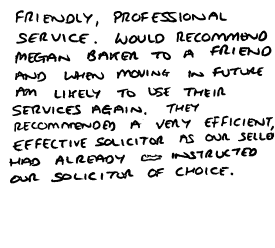 FRIENDLY, PROFESSIONAL
SERVICE. WOULD RECOMMEND
MEGAN BAKER TO A FRIEND
AND WHEN MOVING IN FUTURE
AM LIKELY TO USE THEIR
SERVICES AGAIN. THEY
RECOMMENDED A VERY EFFICIENT,
EFFECTIVE SOLICITOR AS OUR SELLER
HAD ALREADY INSTRUCTED
OUR SOLICITOR OF CHOICE.